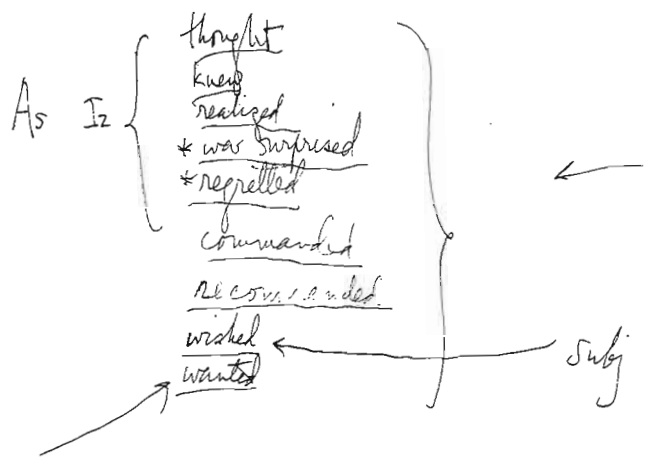 thought
knew
As Iz realized
* was surprised
* regretted
commanded
recommended
wished
Subj
wanted